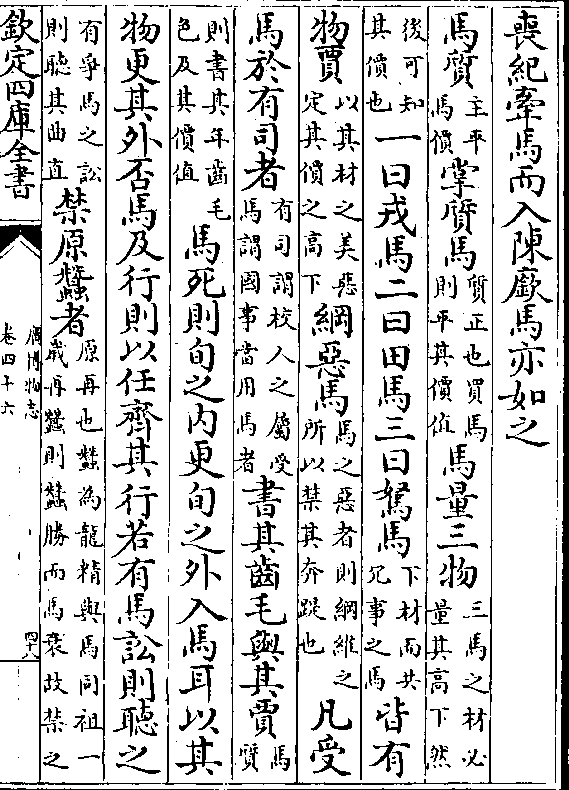 喪紀牽馬而入陳廞馬亦如之
馬質主平馬價掌質馬質正也買馬則平其價值馬量三物三馬之材必量其髙下然
後可知其價也一曰戎馬二曰田馬三曰駑馬下材而共冗事之馬皆有
物賈以其材之美惡定其價之髙下綱惡馬馬之惡者則綱維之所以禁其奔踶也凡受
馬於有司者有司謂校人之屬受馬謂國事當用馬者書其齒毛與其賈馬質
則書其年齒毛色及其價值馬死則旬之内更旬之外入馬耳以其
物更其外否馬及行則以任齊其行若有馬訟則聽之
有爭馬之訟則聽其曲直禁原蠶者原再也蠶為龍精與馬同祖一歲再蠶則蠶勝而馬衰故禁之
欽定四庫全書
廣博物志
卷四十六
四十八